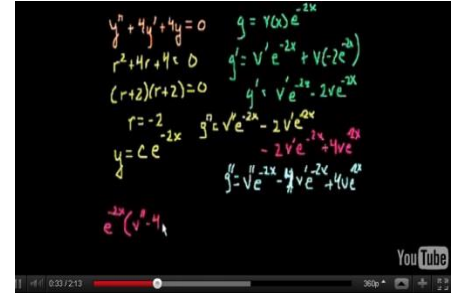 y'' + 4y' + 4y = 0
r² + 4r + 4 = 0
(r+2)(r+2) = 0
r = -2
y = ce^-2x
e^-2x (v'' - 4
g = v(x) e^-2x
g' = v' e^-2x + v(-2e^-2x)
g' = v' e^-2x - 2ve^-2x
g'' = v'' e^-2x - 2v' e^-2x
- 2v' e^-2x + 4ve^-2x
g'' = v'' e^-2x - 4v' e^-2x + 4ve^-2x
You Tube
0:33 / 2:13
360p